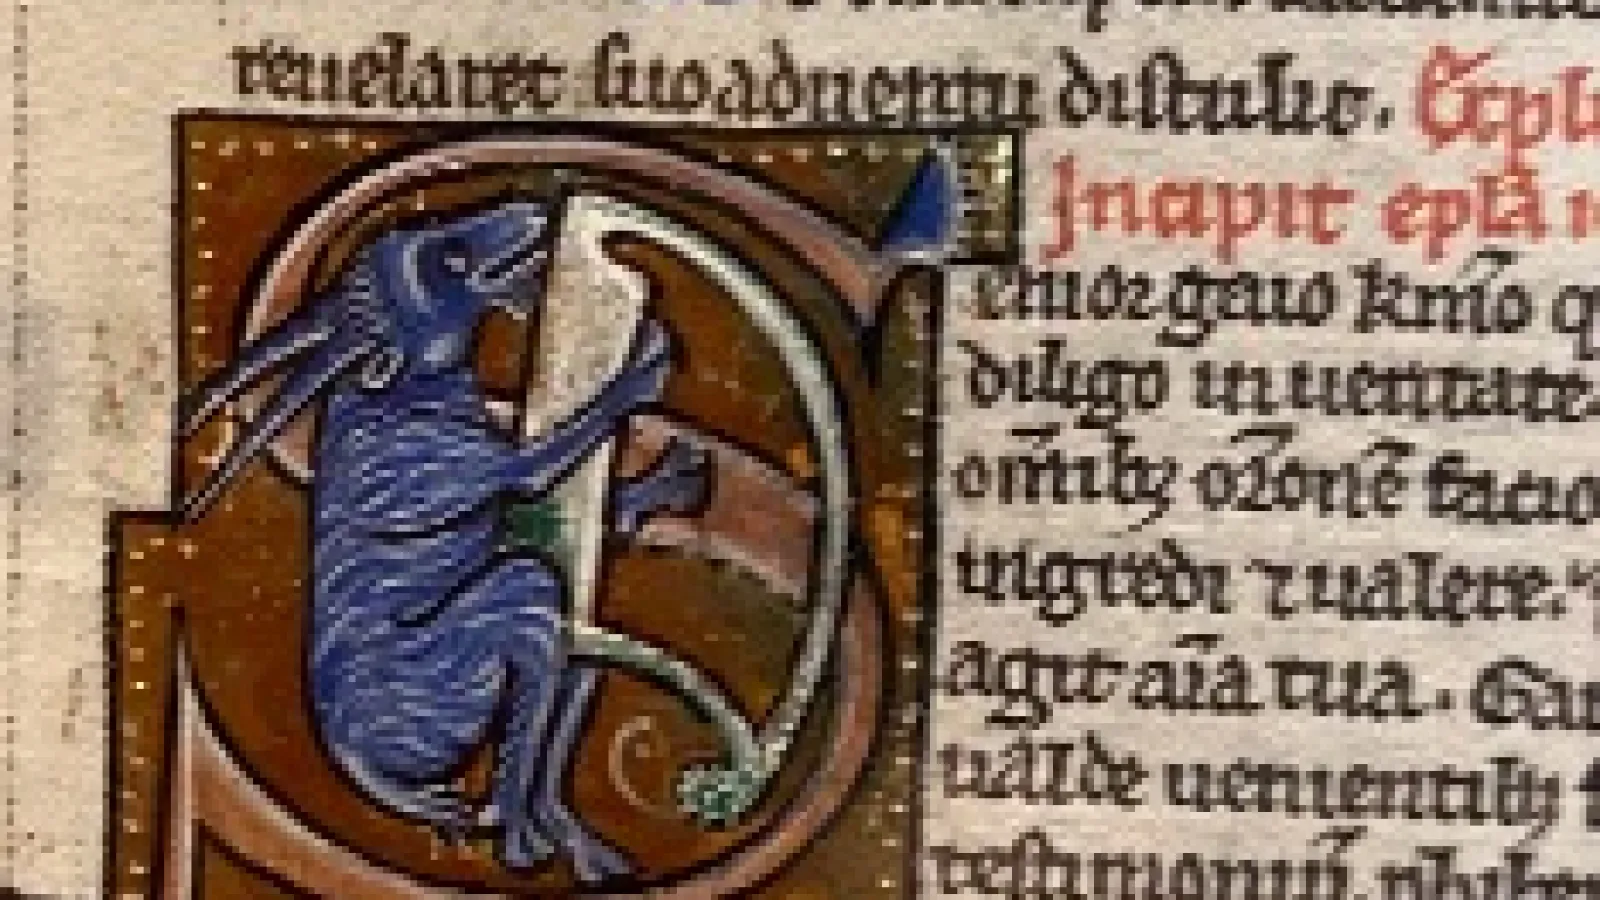 reuelaret suo aduentu distulit. Expl
Incipit epla
enior gaio kmo q
diligo in ueritate.
omibȝ orone facio
ingredi ⁊ ualere.
agit aia tua. Gau
ualde uenientibȝ
testimoniu phiber